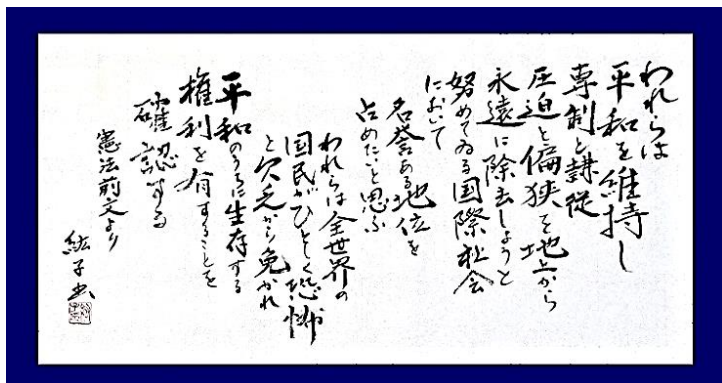 われらは
平和を維持し
専制と隷従
圧迫と偏狭を地上から
永遠に除去しようと
努めてゐる国際社会
において
名誉ある地位を
占めたいと思ふ
われらは全世界の
国民がひとしく恐怖
と欠乏から免かれ
平和のうちに生存する
権利を有することを
確認する
憲法前文より
紘子書